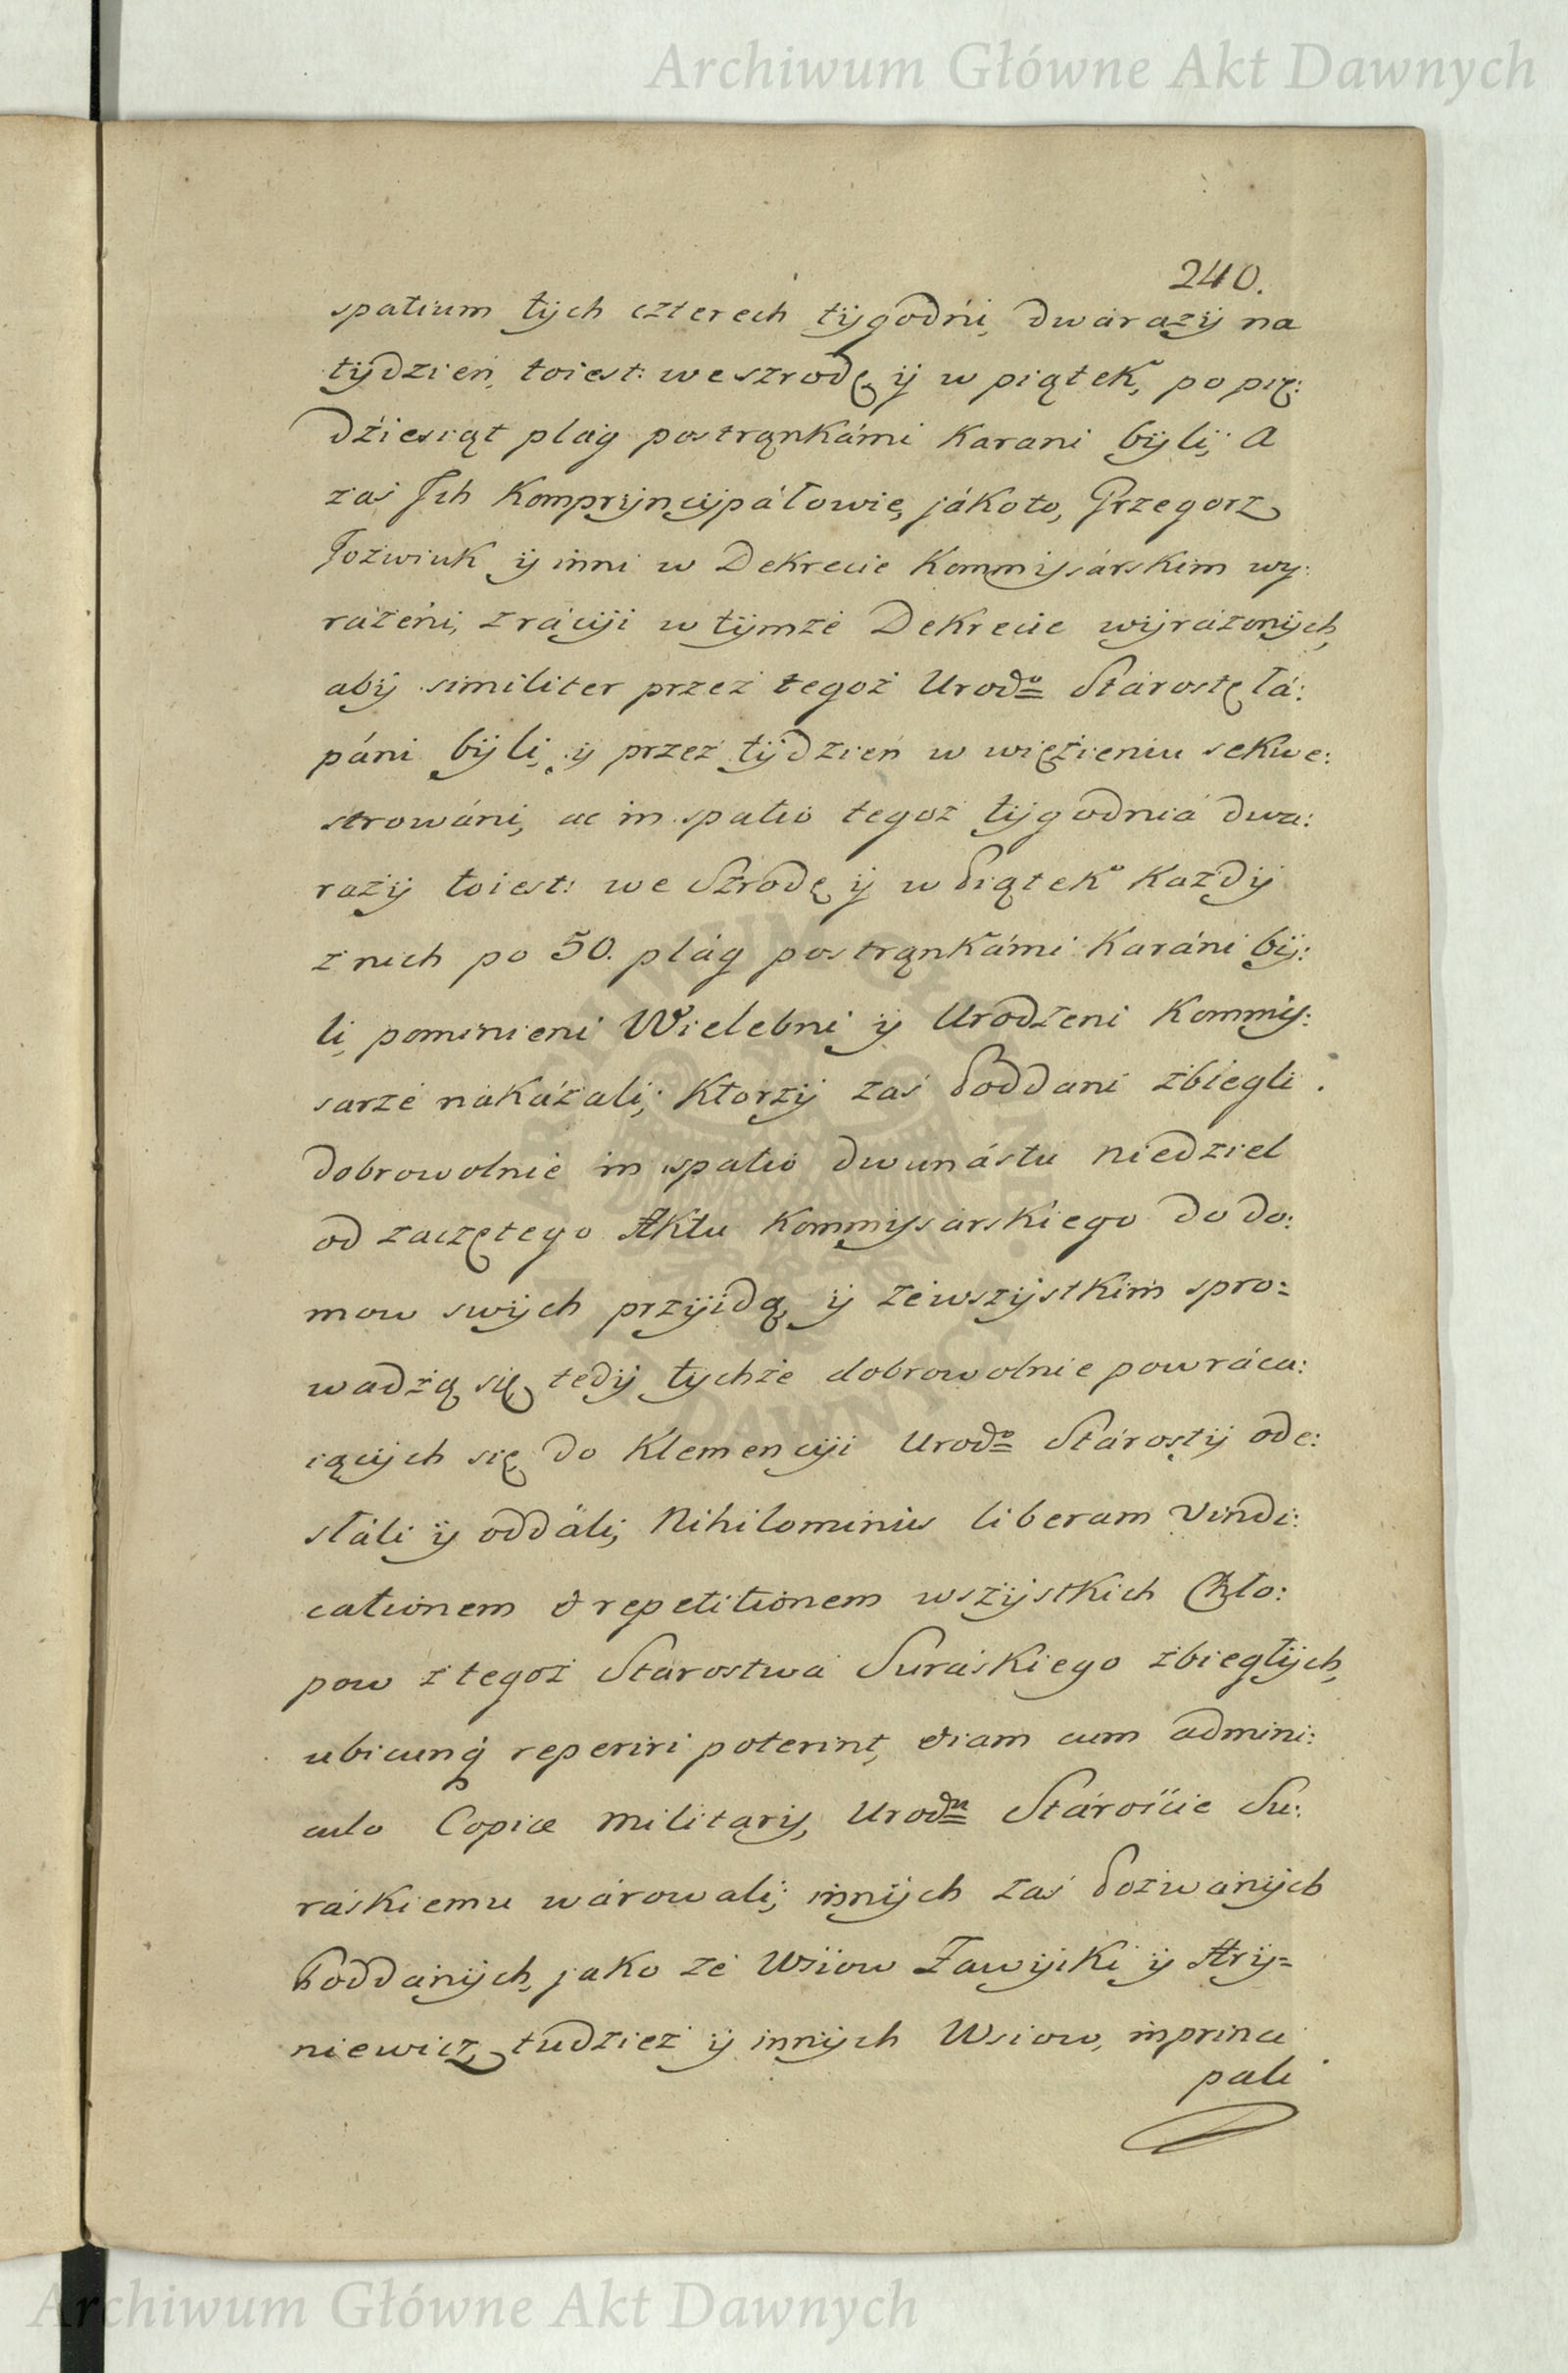 Archiwum Główne Akt Dawnych
240.
spatium tÿch czterech tÿgodńi, dwárazÿ na
tÿdzień, toiest: weszrodę ÿ w piątek, po pię:
dźiesiąt plág postrąnkámi karani bÿli; A
zaś Jch Komprÿncÿpáłowie, jákoto, Grzegorz
Jozwiuk ÿ inni w Dekrecie Kommissárskim wy:
ráżeńi, z ráciji w tÿmże Dekrecie wÿráżonÿch,
abÿ similiter przeż tegoż Urodo Stárostę łá:
páni bÿli, ÿ przeż tÿdzień w więżieniu sekwe:
strowáni, ac in spatio tegoż tÿgodniá dwa:
razÿ toiest: we Szrodę ÿ w Piątek każdÿ
z nich po 50. plág postrąnkámi karáni bÿ:
li, pomienieni Wielebni ÿ Urodzeni Kommis:
sarze nákázáli; Ktorzÿ zaś Poddani zbiegli
dobrowolnie in spatio dwunástu niedziel
od zaczętego Aktu Kommissarskiego do do:
mow swÿch przÿidą, ÿ zewszÿstkim spro=
wadżą się, tedÿ tychże dobrowolnie powráca:
iącÿch się do Klemenciji Urodo Stárostÿ ode:
słáli ÿ oddáli; Nihilominus liberam vindi:
cationem & repetitionem wszÿstkich Chło:
pow z tegoż Starostwa Suráskiego zbiegłÿch,
ubicunq reperiri poterint, etiam cum admini:
culo Copiæ militaris, Urodu Stárośćie Su:
ráskiemu wárowali; innÿch zaś Pozwánÿch
Poddánÿch, jako ze Wsiow Zawÿki ÿ Hrÿ=
niewicz, tudzież ÿ innÿch Wsiow, in princi
pali
ARCHIWUM GŁÓWNE AKT DAWNYCH
Archiwum Główne Akt Dawnych